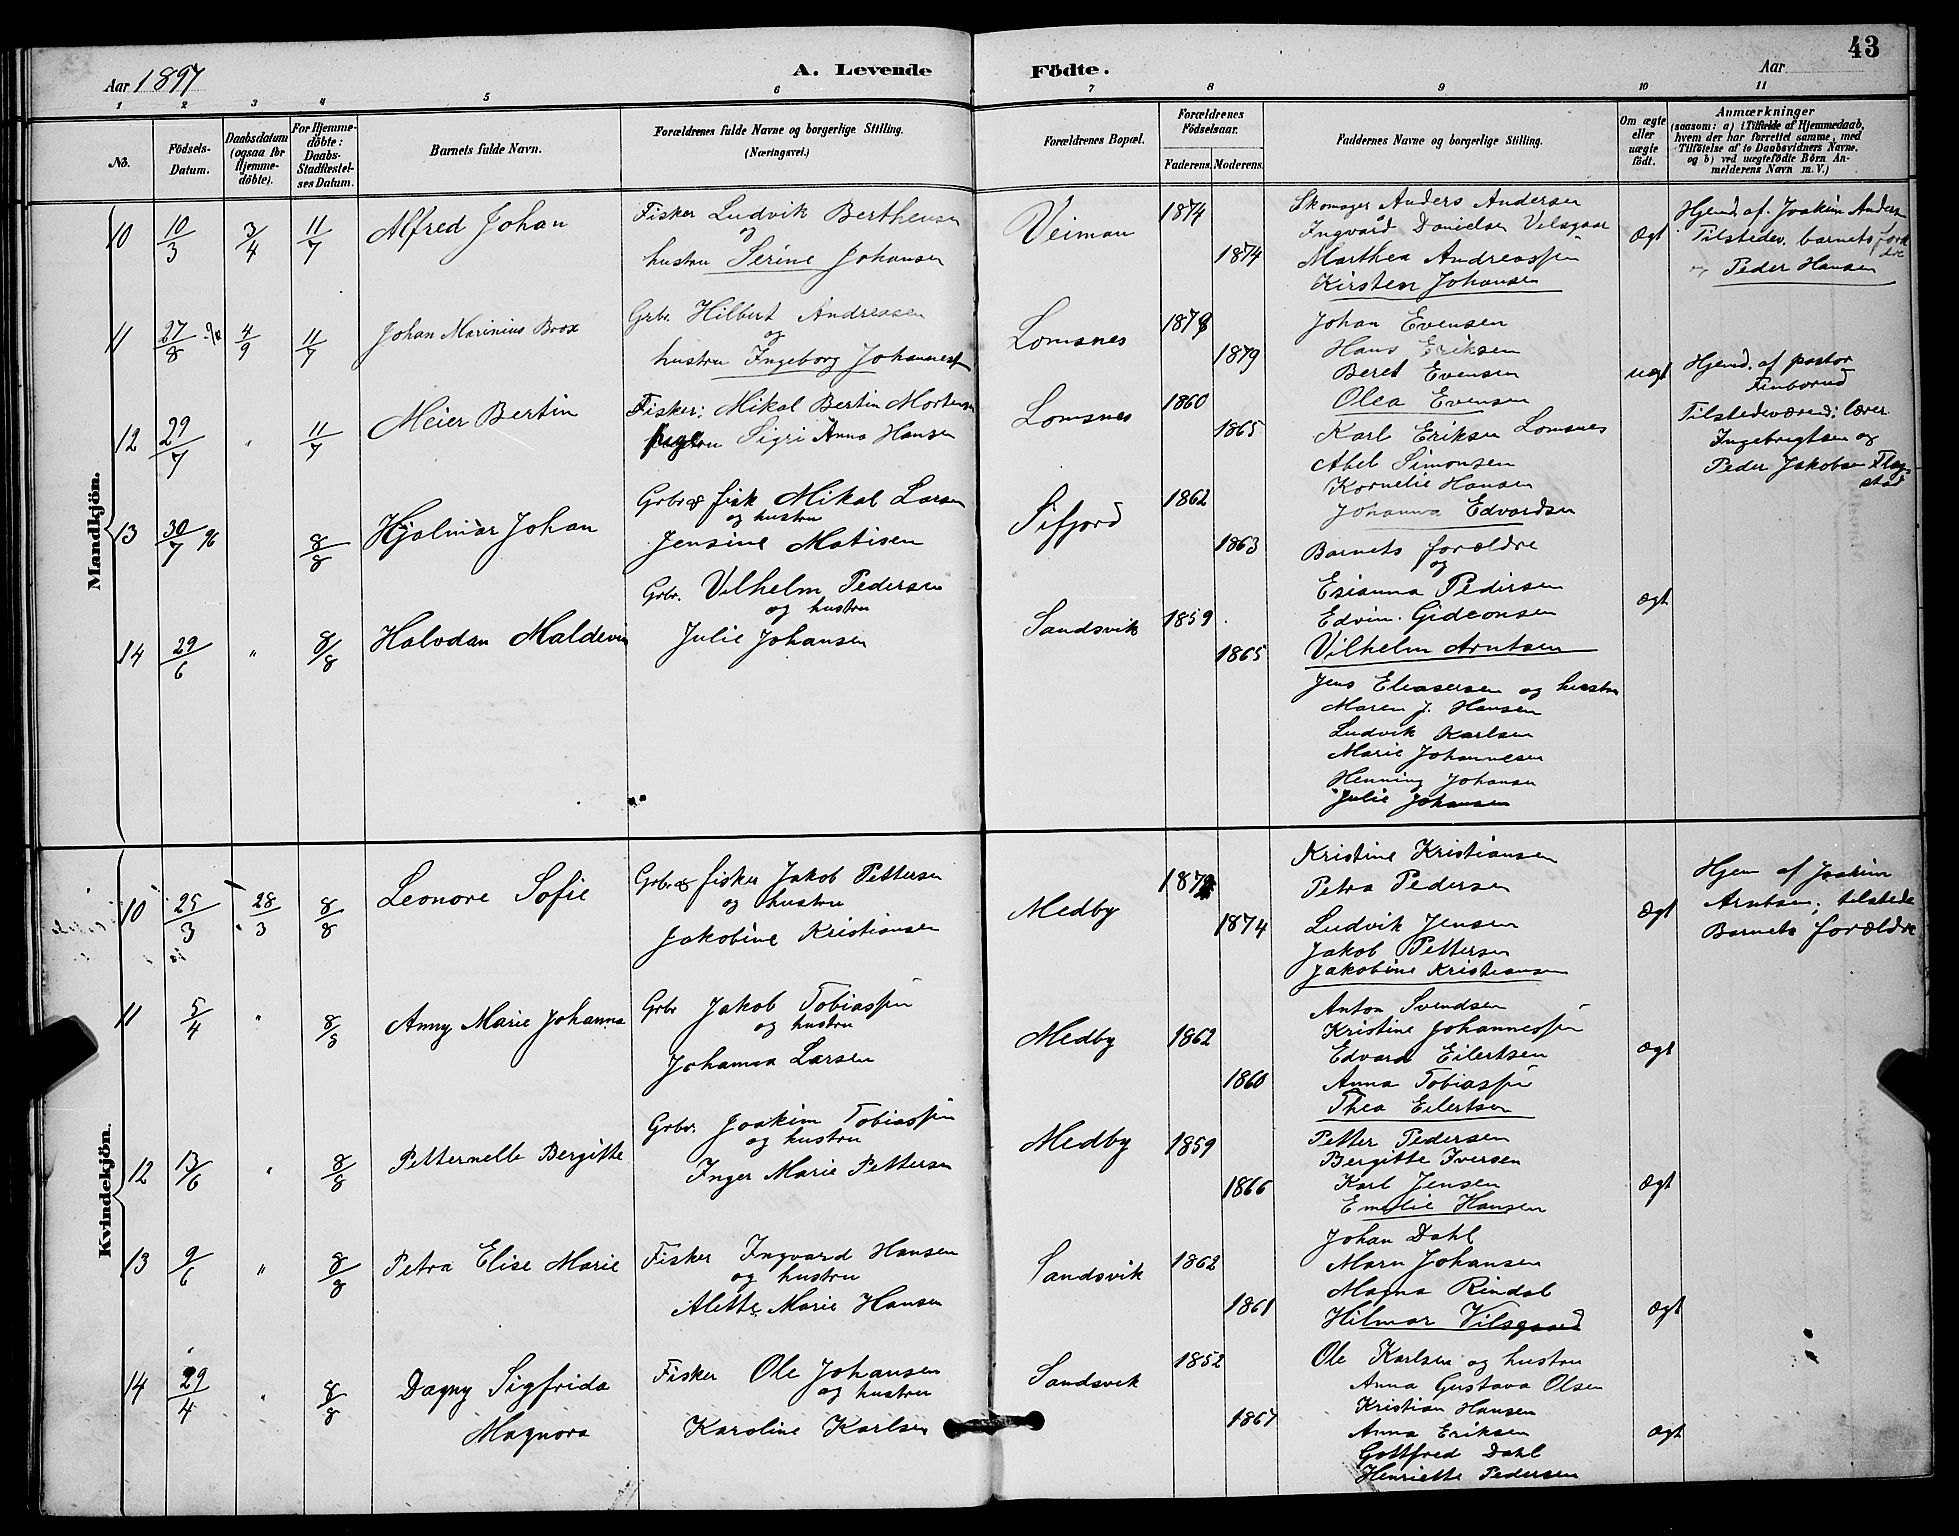 43
Aar 1897
A. Levende
Födte.
Aar
1 2 3 4 5 6 7 8 9 10 11
No.
Födsels-
Datum.
Daabsdatum
(ogsaa for
Hjemme-
döbte).
For Hjemme-
döbte:
Daabs-
Stadfæstel-
ses Datum.
Barnets fulde Navn.
Forældrenes fulde Navne og borgerlige Stilling.
(Næringsvei.)
Forældrenes Bopæl.
Forældrenes
Födselsaar.
Faderens. Moderens.
Faddernes Navne og borgerlige Stilling.
Om ægte
eller
uægte
födt.
Anmærkninger
(saasom: a) i Tilfælde af Hjemmedaab,
hvem der har forrettet samme, med
Tilföielse af to Daabsvidners Navne,
og b) ved uægtefödte Börn An-
melderens Navn m. V.)
Mandkjön.
10 10/3 3/4 11/7 Alfred Johan
Fisker Ludvik Berthensen
og
hustru Serine Johansen
Veiman 1874 1874
Skomager Anders Andersen
Ingvard Danielsen Vilsgaar
Marthea Andreassen
Kirsten Johansen
Ægt
Hjemd. af. Joakim Anders
Tilstedev. barnets foræl
dre
og Peder Hansen
11 27/8 4/9 11/7 Johan Marinius Brox
Grbr. Hilbert Andreasen
og
hustru Ingeborg Johanness
Lomsnes 1879
Johan Evensen
Hans Eriksen
Beret Evensen
Olea Evensen
uægt
Hjemd. af pastor
Finborud
Tilstedeværend: lærer
Ingebrigtsen og
Peder Jakobsen Flag-
stad
12 29/7 " 11/7 Meier Bertin
Fisker: Mikal Bertin Mortensen
Sigri Anna Hansen
Lomsnes 1860 1865
Karl Eriksen Lomsnes
Abel Simonsen
Kornelie Hansen
Johanna Edvardsen
13 30/7 96 8/8 Hjalmar Johan
Grbr & fisk Mikal Larsen
og hustru
Jensine Matisen
Sifjord 1862 1863
Barnets forældre
og
Esianna Pedersen
Edvin Gideonsen
Vilhelm Arntsen
14 29/6 " 8/8 Halvdan Maldevin
Grbr. Vilhelm Pedersen
og hustru
Julie Johansen
Sandsvik 1859 1865
ægt
Jens Eleasersen og hustru
Maren J. Hansen
Ludvik Karlsen
Marie Johannesen
Henning Johansen
Julie Johansen
Kvindekjön.
10 25/3 28/3 8/8 Leonore Sofie
Grbr & fisker Jakob Pettersen
og hustru
Jakobine Kristiansen
Medby 1874
Kristine Kristiansen
Petra Pedersen
Ludvik Jensen
Jakob Pettersen
Jakobine Kristiansen
Ægt
Hjem af Joakim
Arntsen; tilstede
Barnets forældre
11 5/4 " 8/8 Anny Marie Johanna
Grbr Jakob Tobiassen
og hustru
Johanna Larsen
Medby 1862 1860
Anton Svendsen
Kristine Johannessen
Edvard Eilertsen
Anna Tobiassen
Thea Eilertsen
Ægt
12 13/6 " 8/8 Petternelle Bergitte
Grbr. Joakim Tobiassen
og hustru
Inger Marie Pettersen
Medby 1859 1866
Petter Pedersen
Bergitte Iversen
Karl Jensen
Emelie Hansen
Ægt
13 9/6 " 8/8 Petra Elise Marie
Fisker Ingvard Hansen
og hustru
Alette Marie Hansen
Sandsvik 1862 1861
Johan Dahl
Marn Johansen
Magna Rindal
Hilmar Vilsgaard
Ægt
14 29/4 " 8/8 Dagny Sigfrida
Magnora
Fisker Ole Johansen
og hustru
Karoline Karlsen
Sandsvik 1852 1867
Ole Karlsen og hustru
Anna Gustava Olsen
Kristian Hansen
Anna Eriksen
Gottfred Dahl
Henriette Pedersen
Ægt